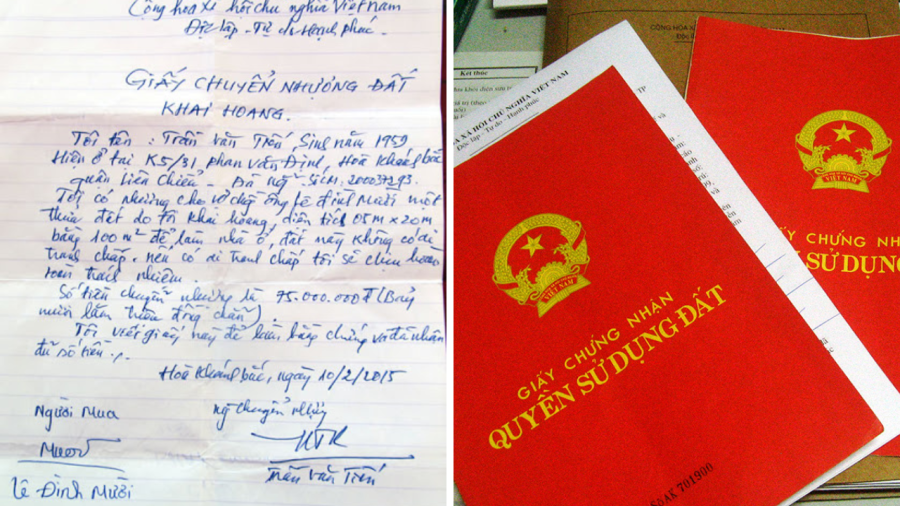 Cộng hòa xã hội chủ nghĩa Việt Nam
Độc lập - Tự do - Hạnh phúc.
GIẤY CHUYỂN NHƯỢNG ĐẤT
KHAI HOANG.
Tôi tên : Trần Văn Tiến, Sinh năm 1959
Hiện ở tại K5/31 Phan Văn Định, Hoà Khánh bắc
quận Liên Chiểu - Đà nẵng - Số CM: 200037293.
Tôi có nhường cho vợ chồng ông Lê Đình Mười một
thửa đất do tôi khai hoang, diện tích 05m x 20m
bằng 100m² để làm nhà ở, đất này không có ai
tranh chấp. nếu có ai tranh chấp tôi sẽ chịu hoàn
toàn trách nhiệm.
Số tiền chuyển nhường là 75.000.000đ (Bảy
mươi lăm triệu đồng chẵn).
Tôi viết giấy này để làm bằng chứng và đã nhận
đủ số tiền.
Hoà Khánh bắc, ngày 10/2/2015
Người Mua
Mười
Lê Đình Mười
Trần Văn Tiến
CỘNG HÒA X
Độc l
Kết thúc
A XÃ HỘI CHỦ NGHĨA VIỆT NAM
Độc lập - Tự do - Hạnh phúc
TP
VIỆT NAM
GIẤY CHỨNG NHẬN
QUYỀN SỬ DỤNG ĐẤT
AK 701900
VIỆT NAM
ẤY CHỨNG NH
SỬ DỤNG